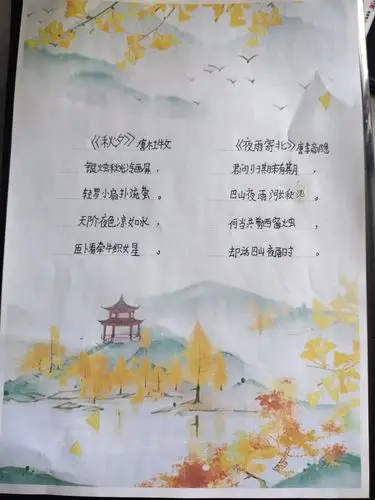 《秋夕》唐杜牧
银烛秋光冷画屏,
轻罗小扇扑流萤。
天阶夜色凉如水,
卧看牵牛织女星。
《夜雨寄北》唐李商隐
君问归期未有期,
巴山夜雨涨秋池。
何当共剪西窗烛,
却话巴山夜雨时。